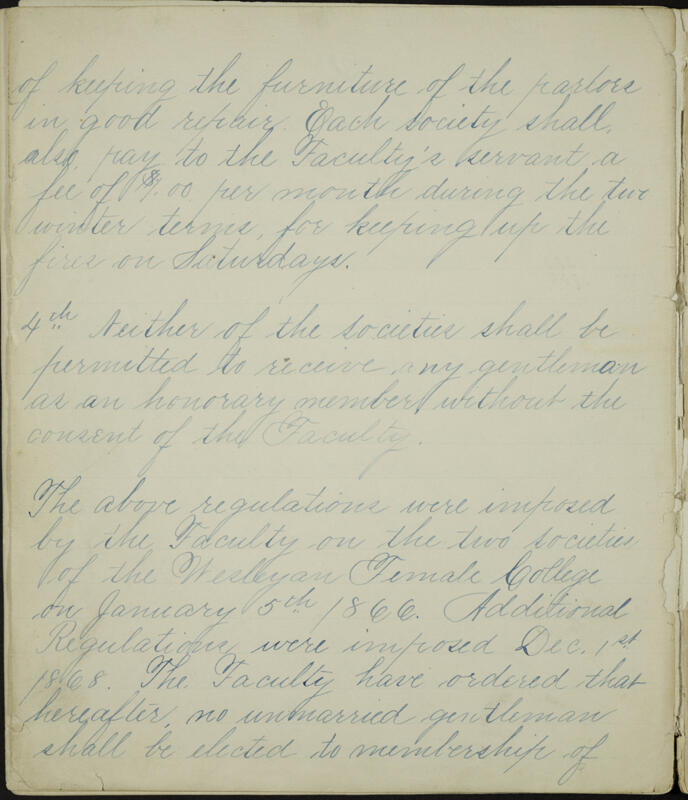 of keeping the furniture of the parlors
in good repair. Each society shall,
also, pay to the Faculty's servant a
fee of $1.00 per month during the two
winter terms, for keeping up the
fires on Saturdays.
4th Neither of the societies shall be
permitted to receive any gentleman
as an honorary member, without the
consent of the Faculty.
The above regulations were imposed
by the Faculty on the two societies
of the Wesleyan Female College
on January 5th 1866. Additional
Regulations were imposed Dec. 1st
1868. The Faculty have ordered that
hereafter, no unmarried gentleman
shall be elected to membership of